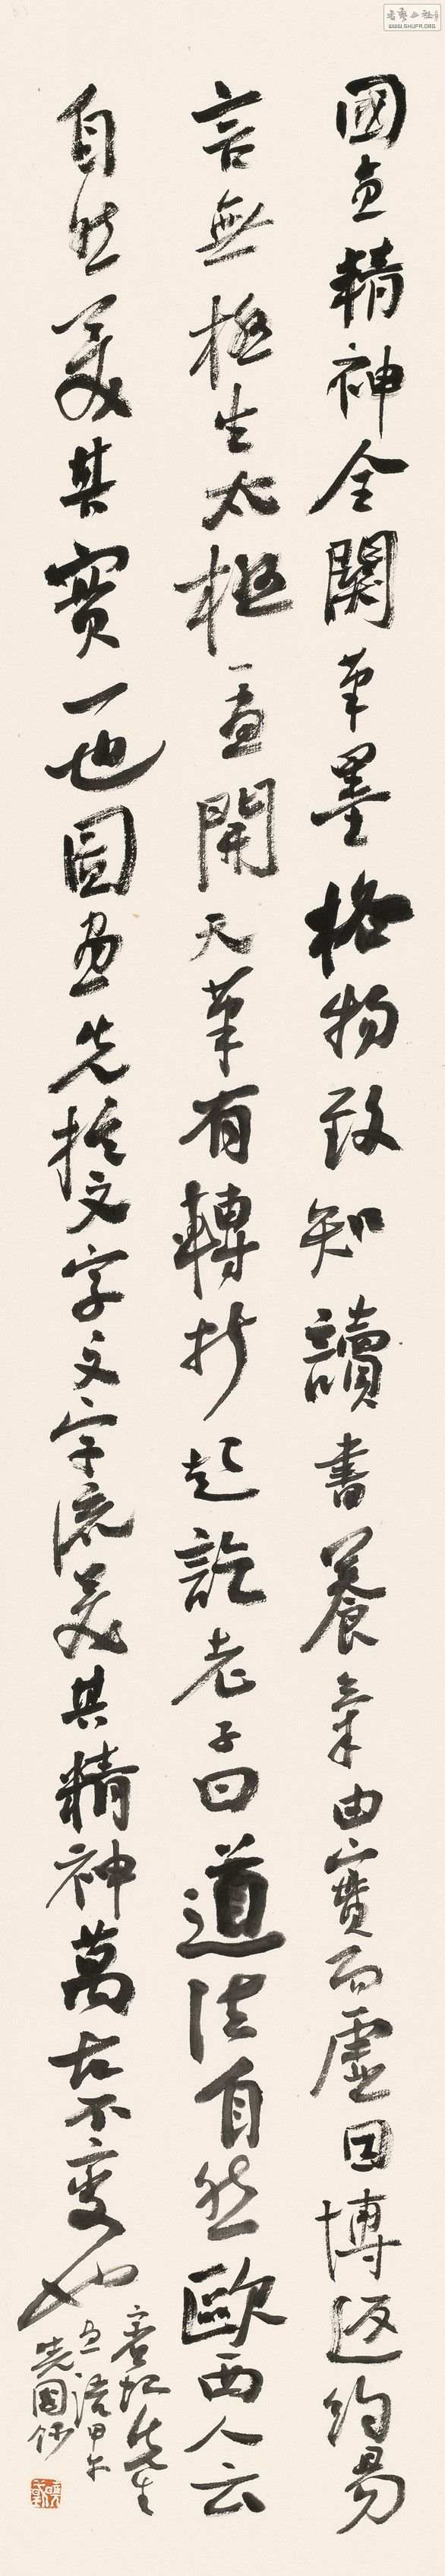 國畫精神全關筆墨格物致知讀書養氣由實而虛因博返約易
言無極生太極一畫開天筆有轉折起訖老子曰道法自然歐西人云
自然美其實一也圖畫先於文字文字流美其精神萬古不變也
賓虹先生
畫語甲午
光國抄
WWW.SHUFA.ORG